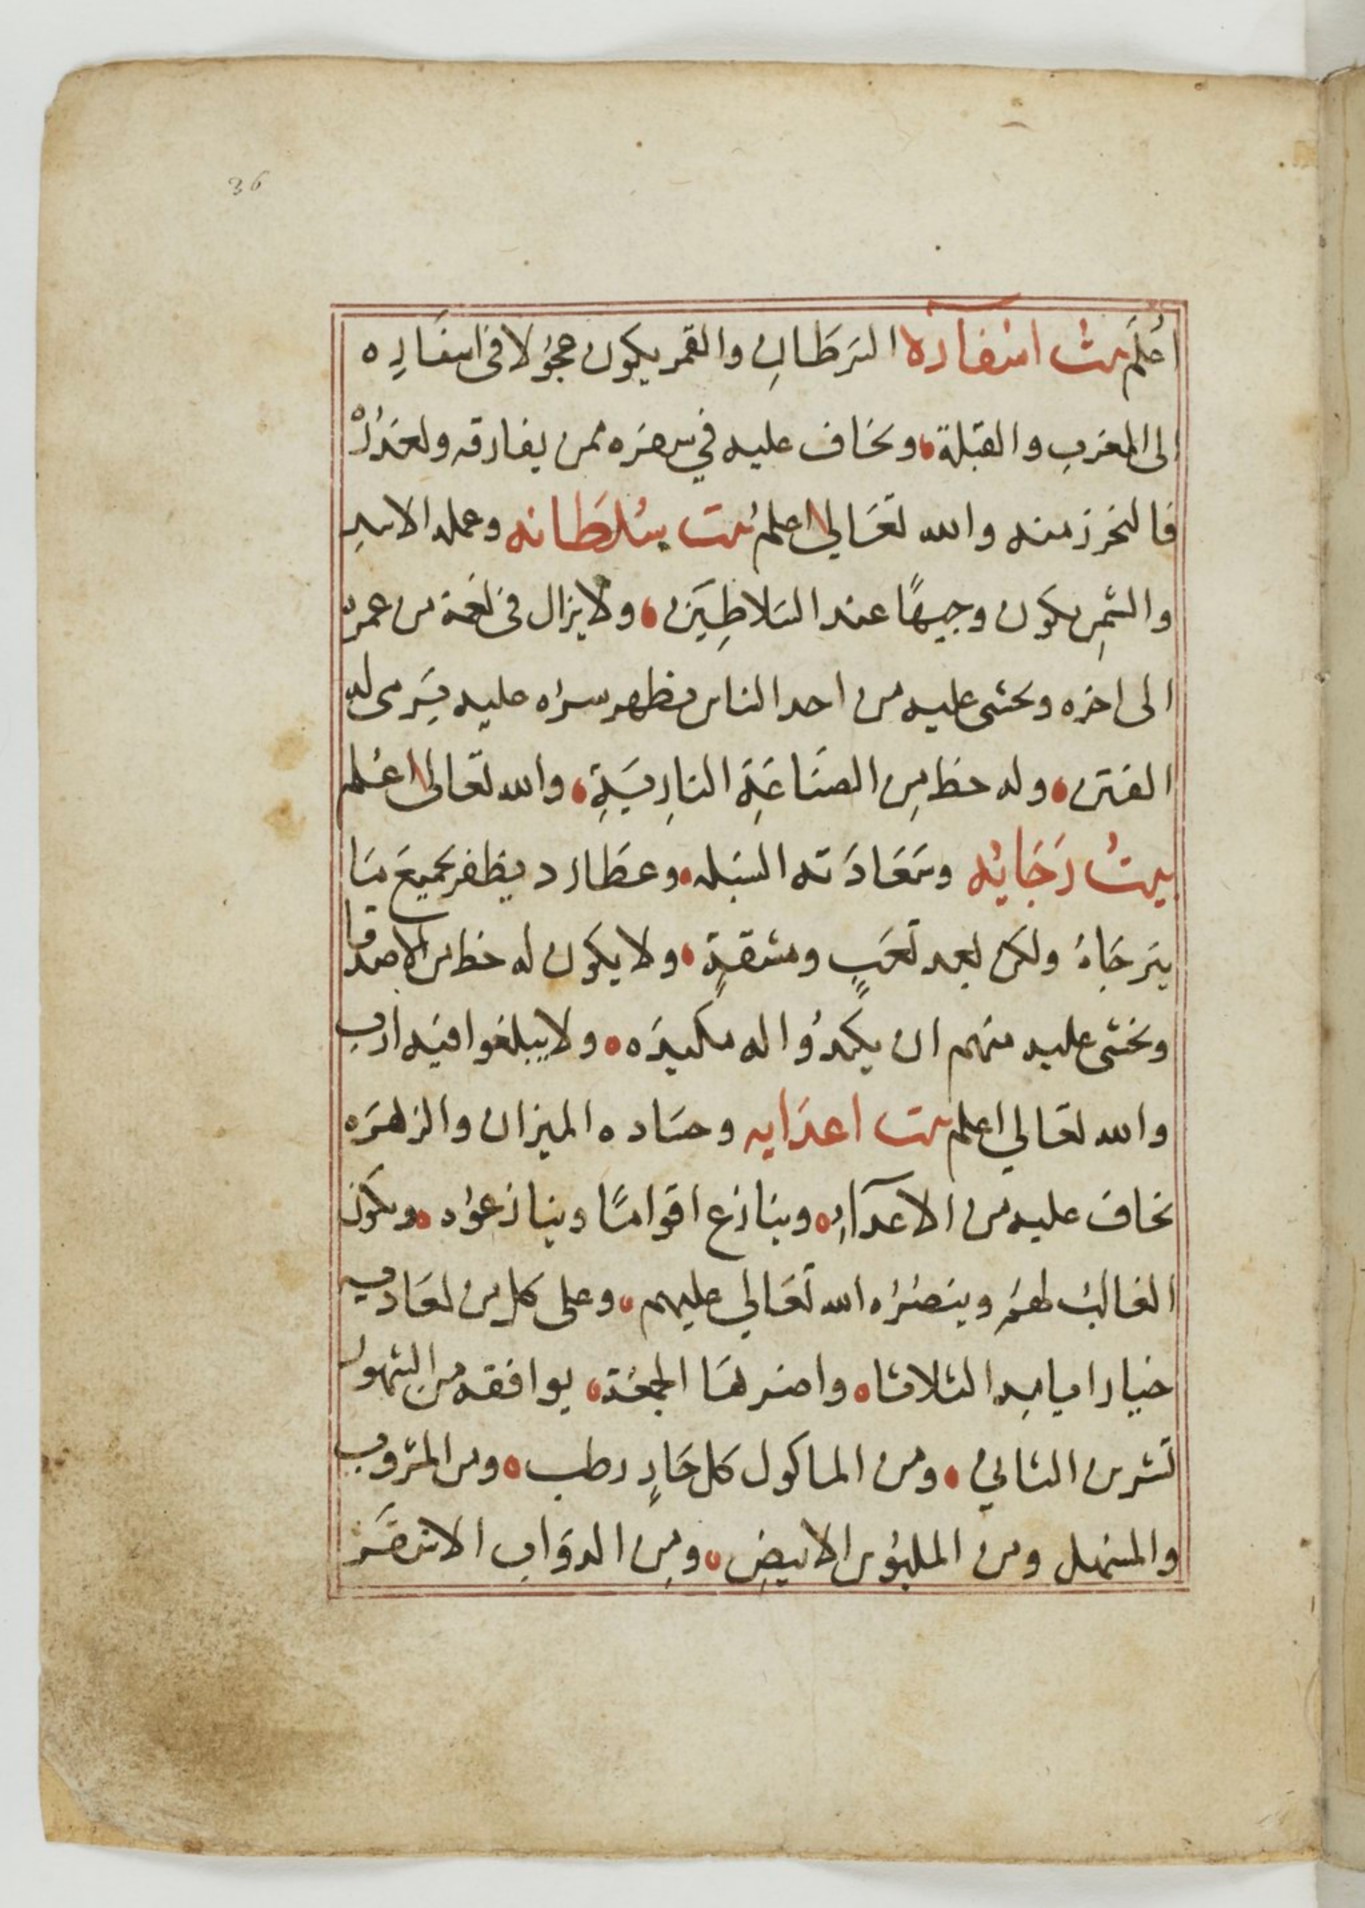 36
اعلم بيت اسفاره السرطان والقمر يكون عجولا في اسفاره
الى المغرب والقبلة ويخاف عليه في سفره ممن يفارقه ولغدره
فالنحرز منه والله تعالى اعلم بيت سلطانه وعمله الاسد
والشمس يكون وجيها عند السلاطين ولا يزال في نعمة من عمره
الى اخره ويخشى عليه من احد الناس يظهر سره عليه يرمى له
الفتن وله حظ من الصناعة النارية والله تعالى اعلم
بيت رجايه وسعادته السنبله وعطارد يظفر بجميع ما
يترجاه ولكن بعد تعب ومشقة ولا يكون له حظ من الاصدقا
ويخشى عليه منهم ان يكيدوا له مكيده ولا يبلغوا فيه ارب
والله تعالى اعلم بيت اعدايه وحساده الميزان والزهره
يخاف عليه من الاعداء وينازع اقواما وينازعوه ويكون
الغالب لهم وينصره الله تعالى عليهم وعلى كل من يعاديه
خيار ايامه الثلاثاه واضرها الجمعة يوافقه من الشهور
تشرين الثاني ومن الماكول كل حار رطب ومن المشروب
والمنهل ومن الملبوس الابيض ومن الدواب الاشقر